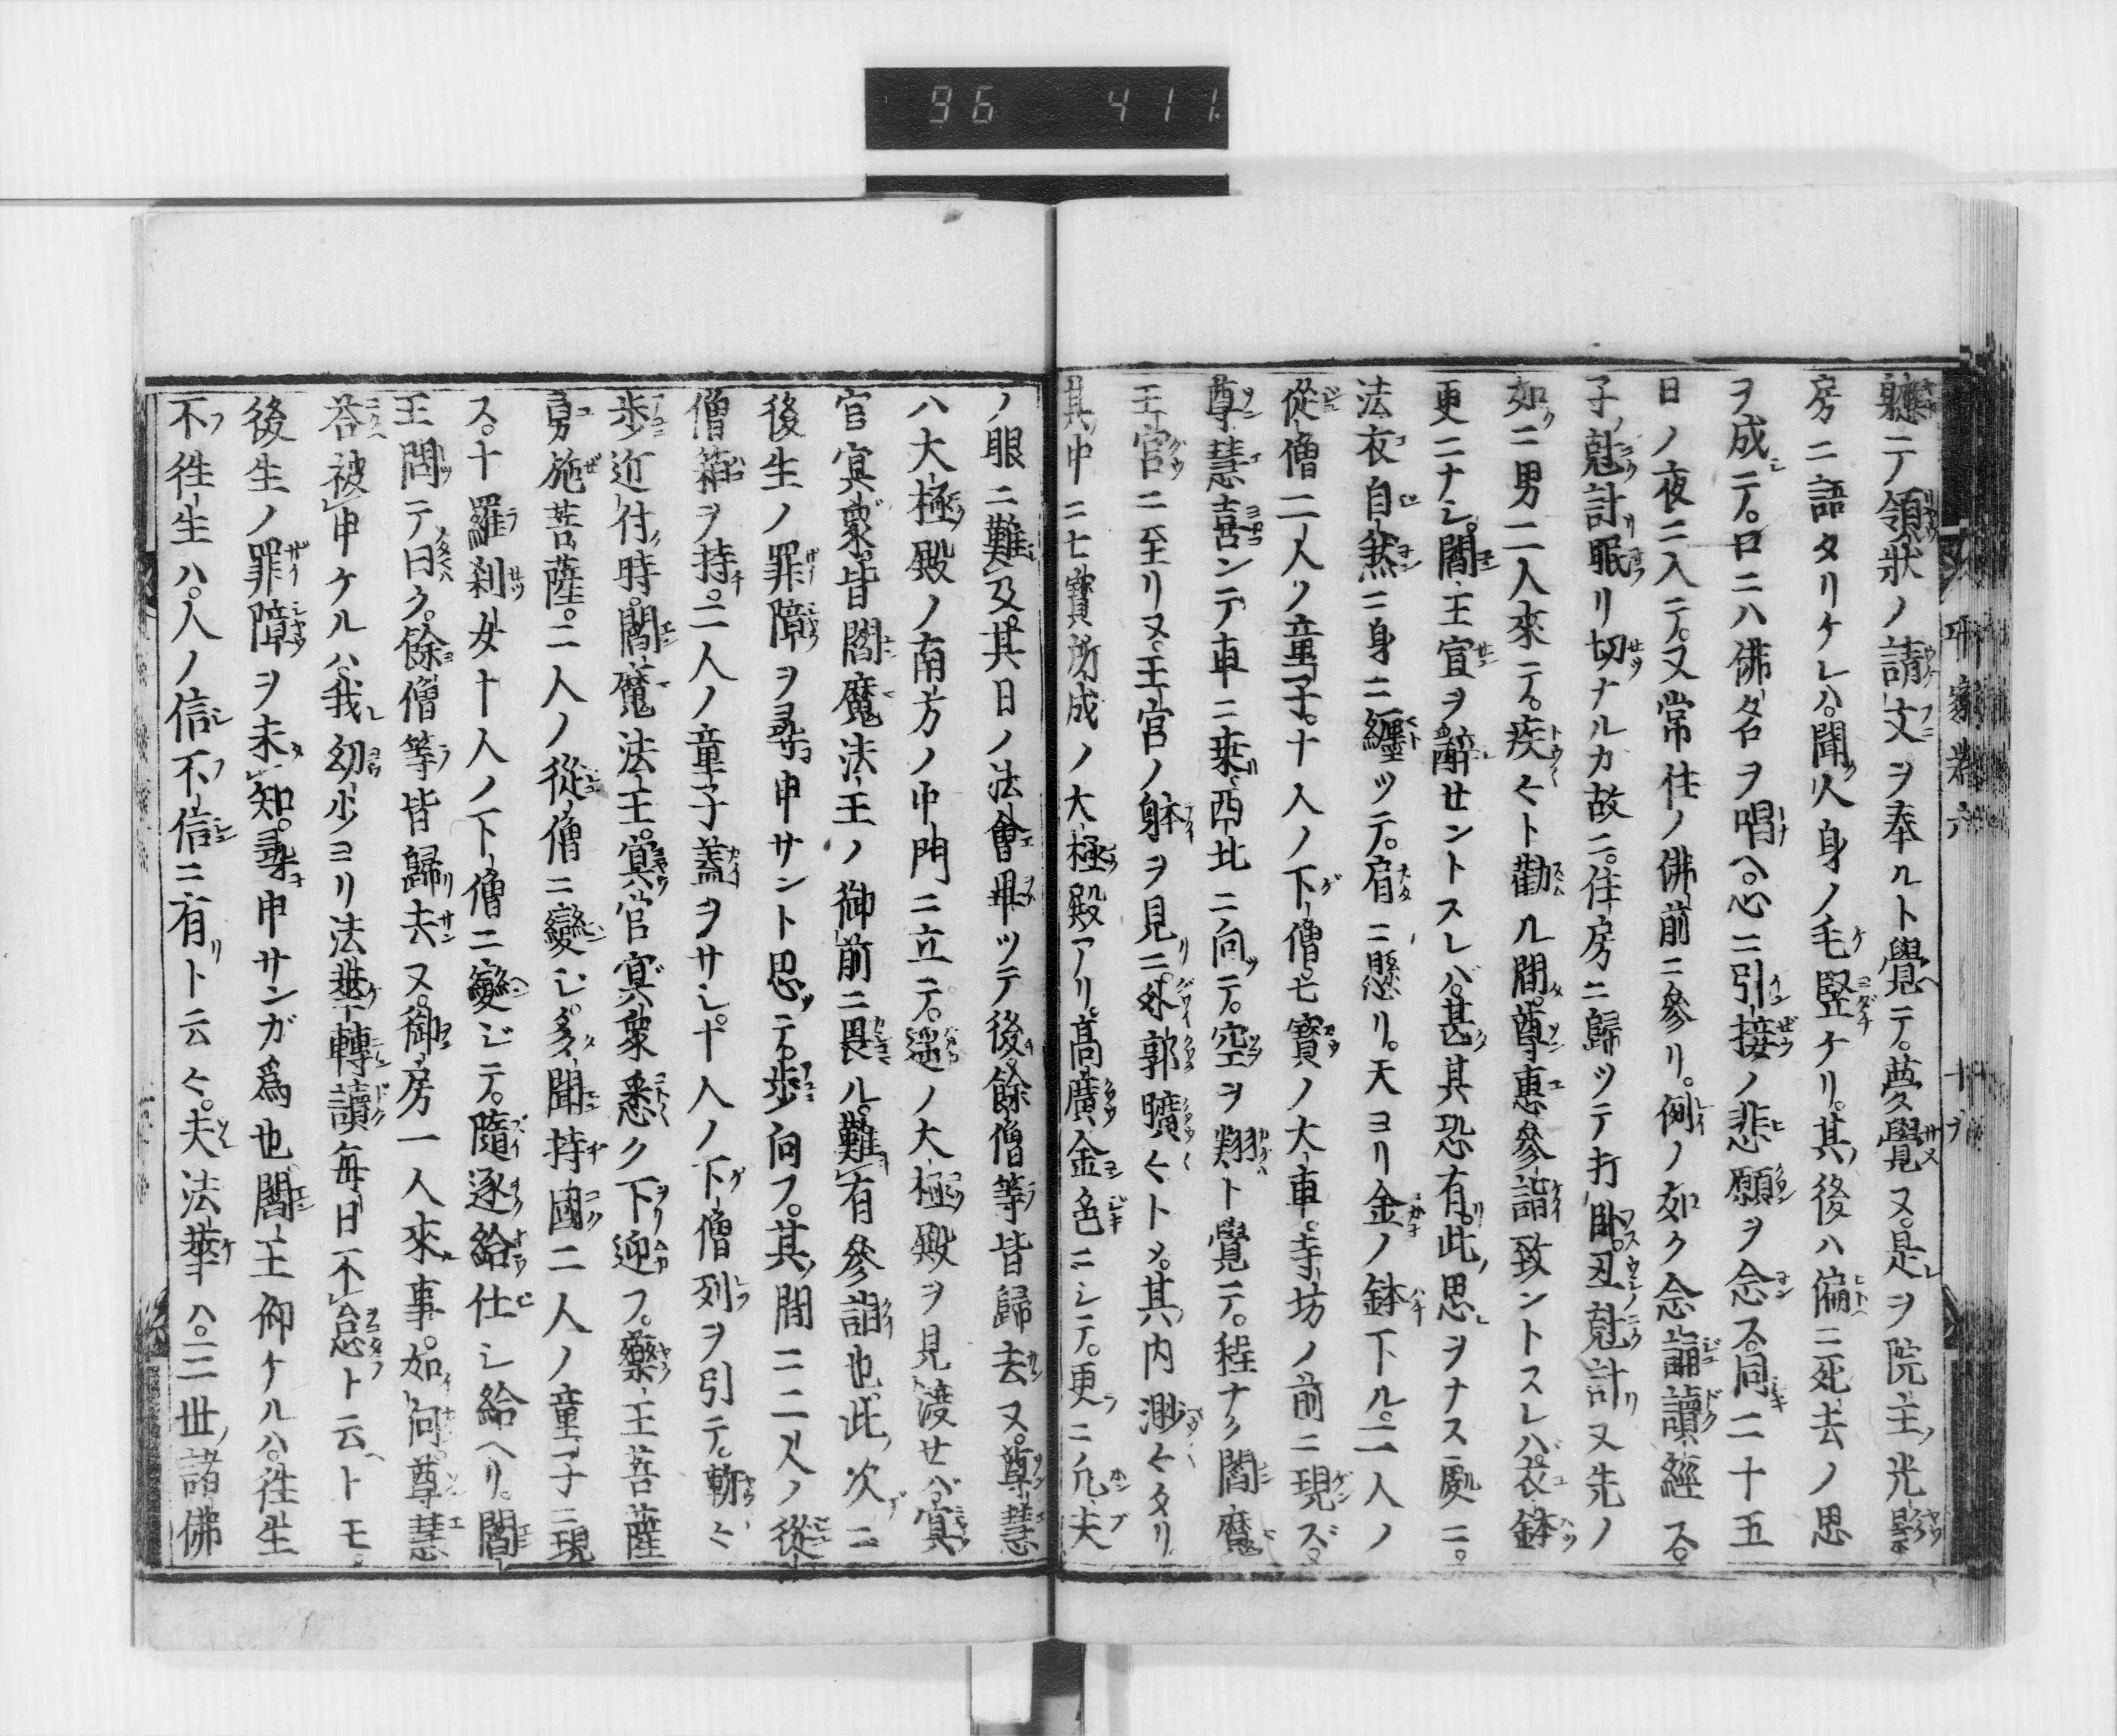 96 411
軈テ領狀ノ請文ヲ奉ルト覺ヘテ。夢覺ヌ。是ヲ院主ノ光影
房ニ語タリケレハ。聞人身ノ毛竪ケリ。其後ハ偏ニ死去ノ思
ヲ成テ。口ニハ佛名ヲ唱ヘ。心ニ引接ノ悲願ヲ念ス。同二十五
日ノ夜ニ入テ。又常住ノ佛前ニ參リ。例ノ如ク念誦讀經ス。
子ノ尅計眠リ切ナルカ故ニ。住房ニ歸ツテ打臥。丑尅計又先ノ
如ニ男二人來テ。疾〱ト勸ル間。尊惠參詣致ントスレハ。衣鉢
更ニナシ。閻王宣ヲ辭セントスレバ。甚其恐有。此思ヲナス處ニ。
法衣自然ニ身ニ纏ツテ。肩ニ懸リ。天ヨリ金ノ鉢下ル。二人ノ
從僧二人ノ童子。十人ノ下僧。七寶ノ大車。寺坊ノ前ニ現ズ。
尊慧喜ンテ車ニ乘リ。西北ニ向テ。空ヲ翔ト覺テ。程ナク閻魔
王宮ニ至リヌ。王宮ノ躰ヲ見ニ。外郭曠〱トメ。其内渺〱タリ
其中ニ七寶所成ノ大極殿アリ。高廣金色ニシテ。更ニ凡夫
平家物六 十ヲ
ノ眼ニ難及。其日ノ法會畢ツテ後。餘僧等皆歸去ヌ。尊慧
ハ大極殿ノ南方ノ中門ニ立テ。遥ノ大極殿ヲ見渡セバ。冥
官冥衆皆閻魔法王ノ御前ニ畏ル。難有參詣也。此次ニ
後生ノ罪障ヲ尋申サント思ツテ。歩向フ。其間ニ二人ノ從
僧箱ヲ持。二人ノ童子蓋ヲサシ。十人ノ下僧列ヲ引テ。漸〱
歩近付時。閻魔法王。冥官冥衆悉ク下迎フ。藥王菩薩
勇施菩薩。二人ノ從僧ニ變シ。多聞持國二人ノ童子ニ現
ス。十羅刹女十人ノ下僧ニ變ジテ。隨逐給仕シ給ヘリ。閻
王問テ曰ク。餘僧等皆歸去ヌ。御房一人來事。如何。尊慧
答被申ケルハ。我幼少ヨリ法華轉讀每日不怠ト云トモ。
後生ノ罪障ヲ未知。尋申サンガ爲也。閻王仰ケルハ。往生
不往生ハ。人ノ信不信ニ有リト云〱。夫法華ハ。三世ノ諸佛